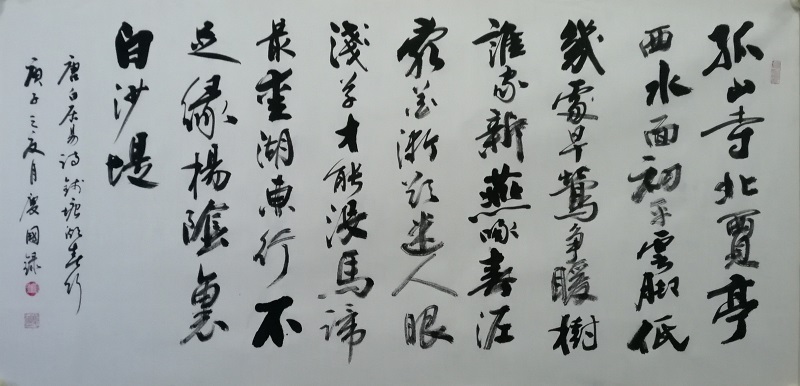 孤山寺北賈亭
西水面初平雲脚低
幾處早鶯争暖樹
誰家新燕啄春泥
亂花漸欲迷人眼
淺草才能没馬蹄
最愛湖東行不
足綠楊陰裏
白沙堤
唐白居易詩錢塘湖春行
庚子之夏月慶國錄